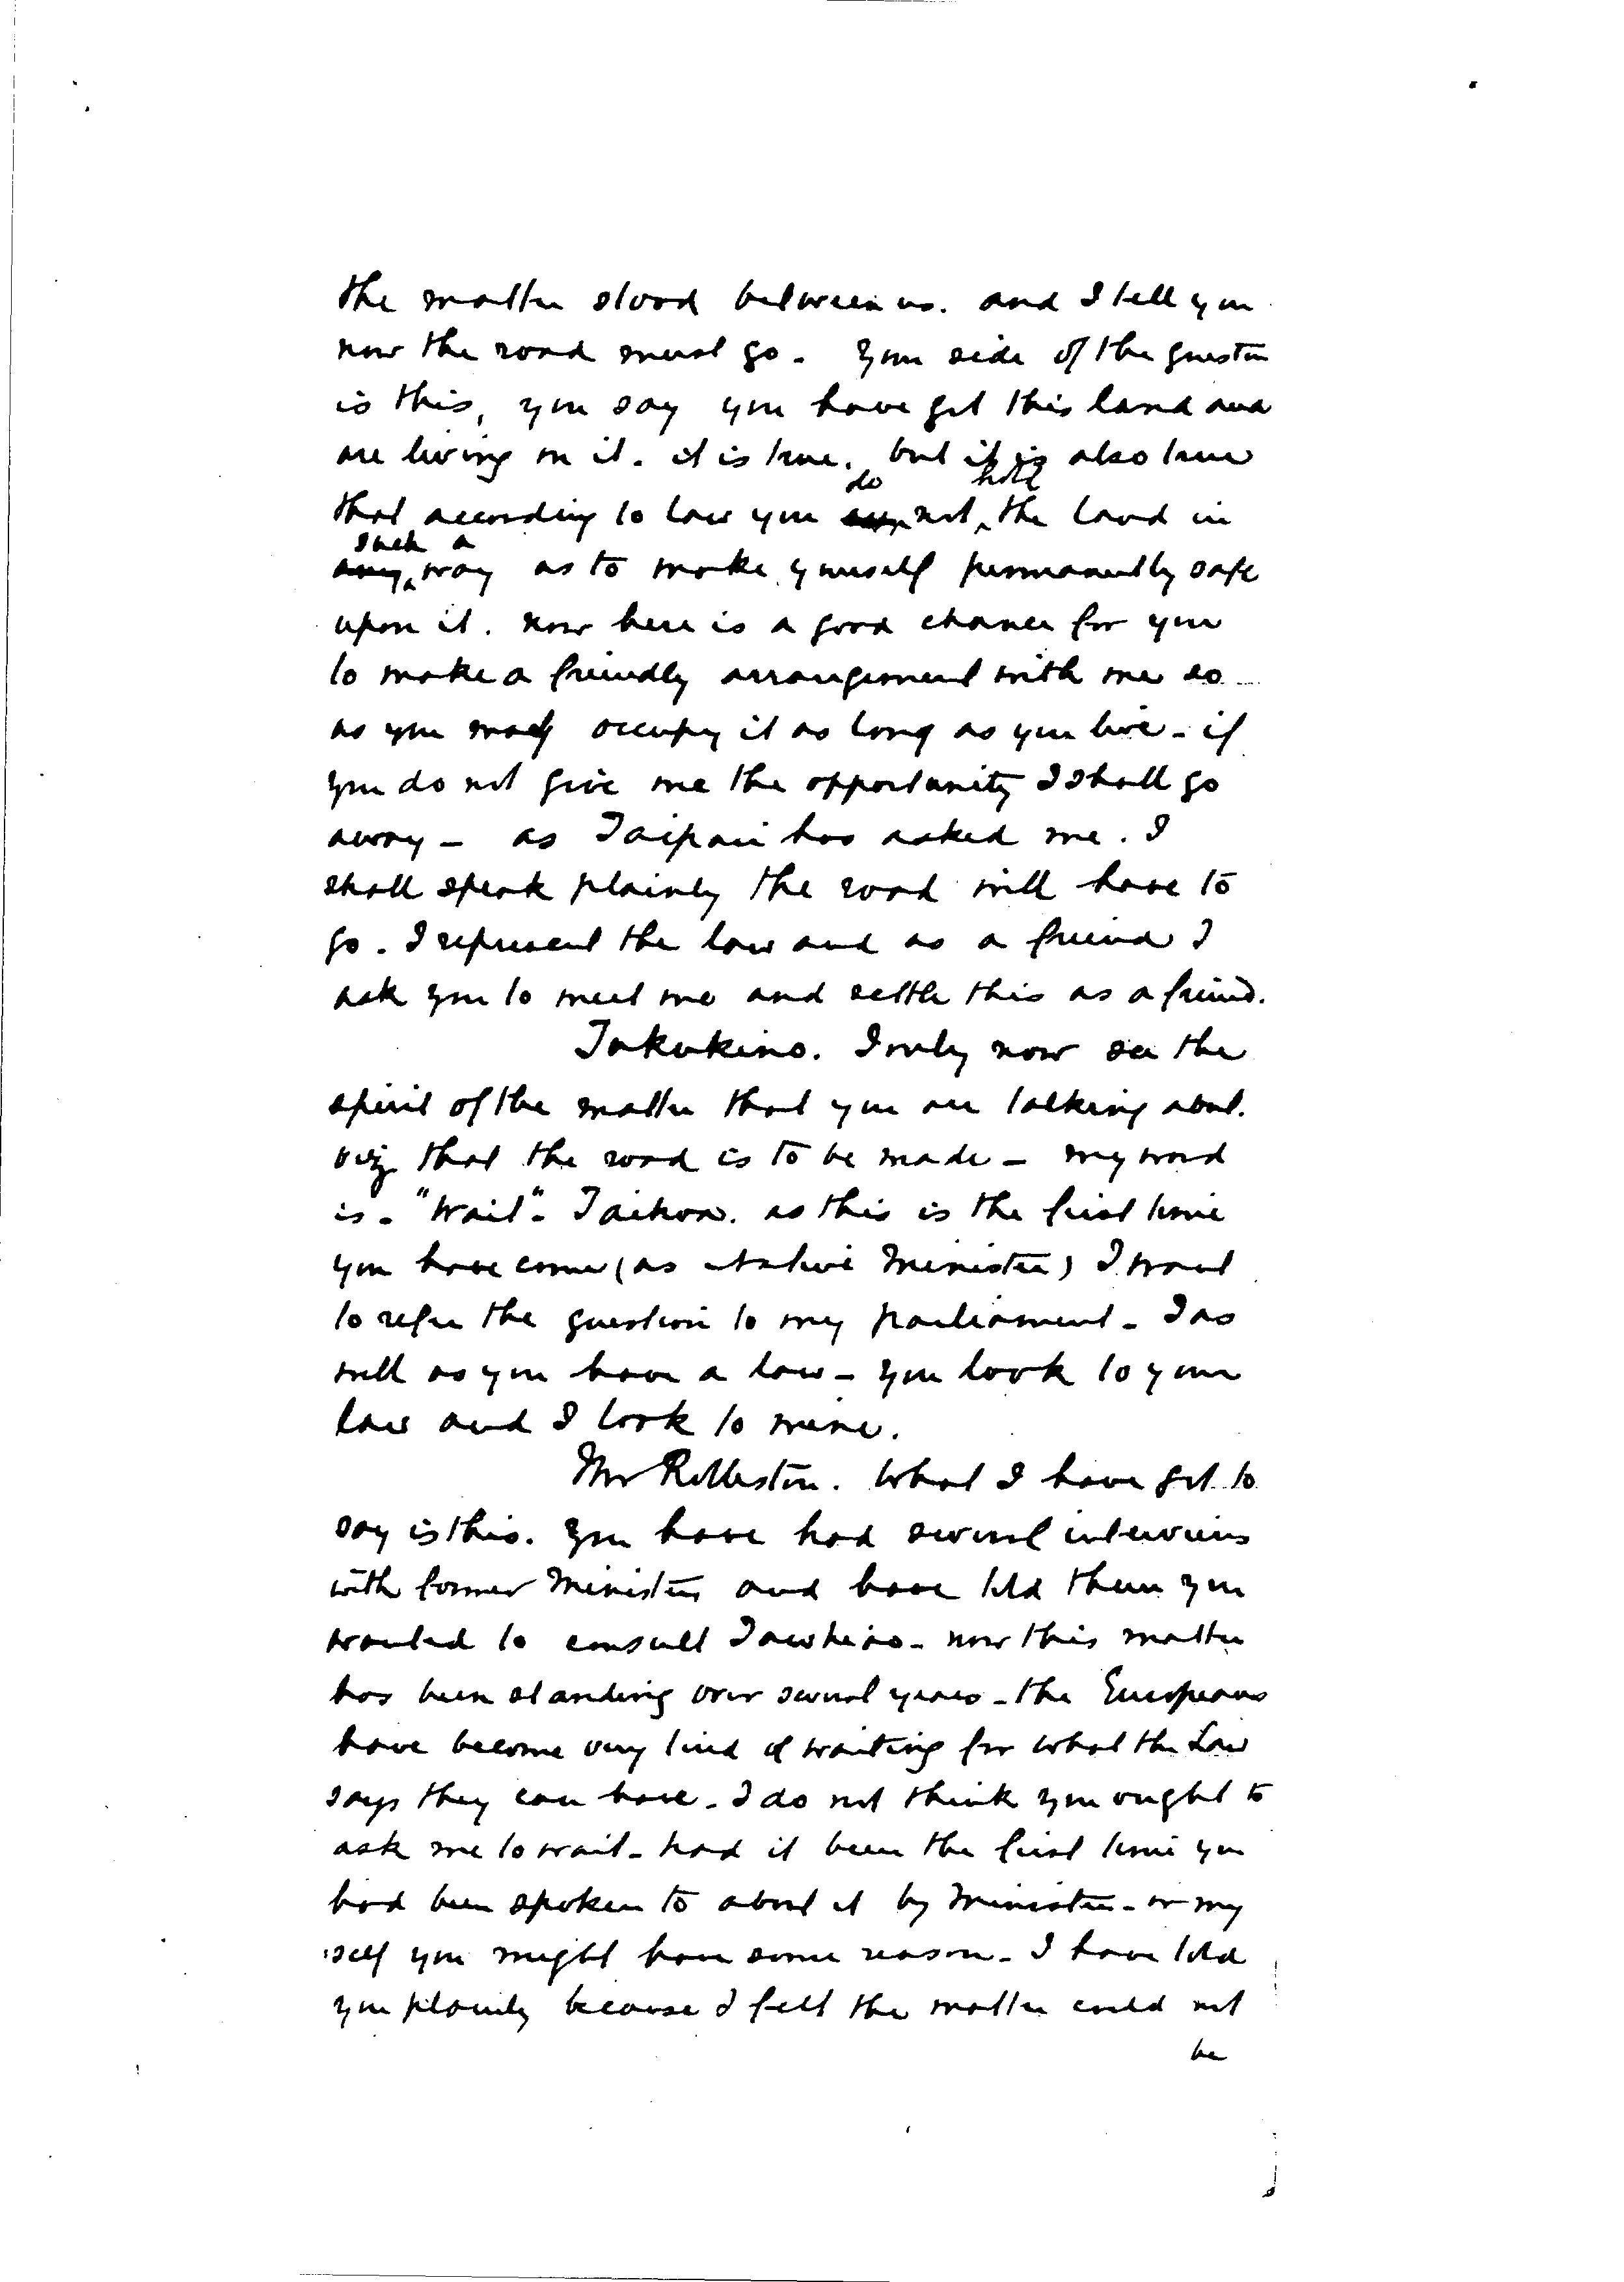 the matter stood between us. and I tell you
now the road must go - your side of the question
is this, you say you have got this land and
are living on it. it is true. but it is also true
that according to law you do not hold the land in
such a way as to make yourself permanently safe
upon it. now here is a good chance for you
to make a friendly arrangement with me so
as you may occupy it as long as you live - if
you do not give me the opportunity I shall go
away - as Taipari has asked me. I
shall speak plainly the road will have to
go. I represent the law and as a friend I
ask you to meet me and settle this as a friend.
Tukukino. I only now see the
spirit of the matter that you are talking about.
viz that the road is to be made - my word
is - "wait" - Taihoa. as this is the first time
you have come (as Native Minister) I want
to refer the question to my parliament - I as
well as you have a law - you look to your
law and I look to mine.
Mr Rolleston. What I have got to
say is this. you have had several interviews
with former Ministers and have told them you
wanted to consult Tawhiao - now this matter
has been standing over several years - the Europeans
have become very tired of waiting for what the Law
says they can have - I do not think you ought to
ask me to wait - had it been the first time you
had been spoken to about it by Ministers - or my
self you might have some reason - I have told
you plainly because I felt the matter could not
be